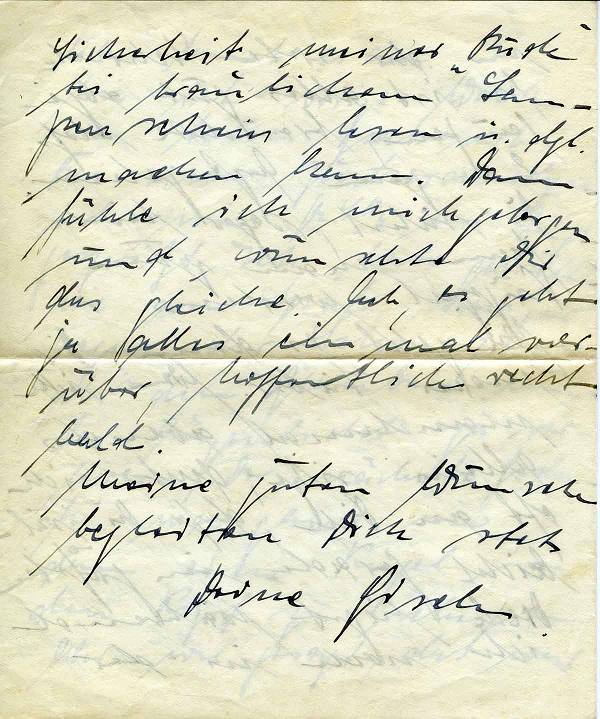 Sicherheit meiner „Bude
bei traulichem Lam-
penschein lesen u. dgl.
machen kann. Dann
fühle ich mich geborgen
und wünschte Dir
das gleiche. Ach, es geht
ja alles einmal vor-
über, hoffentlich recht
bald.
Meine guten Wünsche
begleiten Dich stets
Deine Gisela.